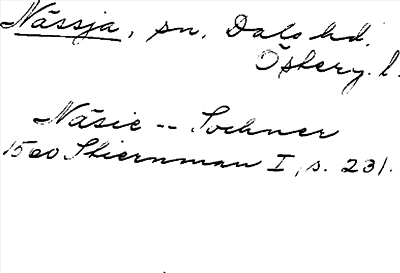 Nässja, sn. Dals hd.
Östberg. l.
Näsie -- Sochner
1560 Stiernman I, s. 231.